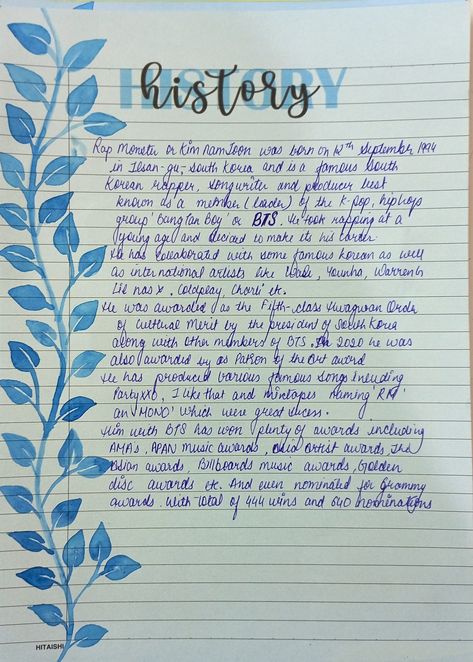 HISTORY
history
Rap Monster or Kim Namjoon was born on 12th September 1994
in Ilsan-gu, South Korea and is a famous South
Korean rapper, songwriter and producer best
known as a member (leader) of the K-pop, hiphop
group 'bangtan boy' or BTS. He took rapping at a
young age and decided to make its his career
He has collaborated with some famous korean as well
as international artists like Wale, Younha, Warren G
Lil nas X, Coldplay, Charli etc.
He was awarded as the Fifth-class Hwagwan Order
of Cultural Merit by the president of South Korea
along with other members of BTS. In 2020 he was
also awarded by as Patron of the Art award
He has produced various famous songs Including
PartyXXO, I like that and mixtapes naming RM
an 'MONO' which were great sucess.
Him with BTS has won plenty of awards including
AMAs, APAN music awards, Artist awards, The
Asian awards, Billboards music awards, Golden
disc awards etc. And even nominated for Grammy
awards. With total of 444 wins and 640 nominations
HITAISHI